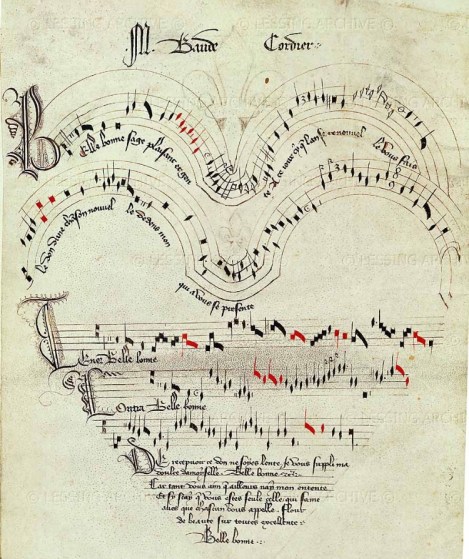 M. Baude Cordier
Belle bonne sage plaisant et gen
te A ce jour cy q̃ lan se renouuel
le Vous fais
le don dune chãson nouuel
le dedens mon
qui a vous se presente
Tenor Belle bonne
Contra Belle bonne
De recepuoir ce don ne soyes lente, Je vous suppli ma
doulce damoyselle. Belle bonne
Car tant vous aim qailleurs nay mon entente
Et sy scay q̃ vous estes seule celle. qui fame
aues que chascun vous appelle. Flour
de beaute sur toutes excellente.
Belle bonne.
LESSING ARCHIVE